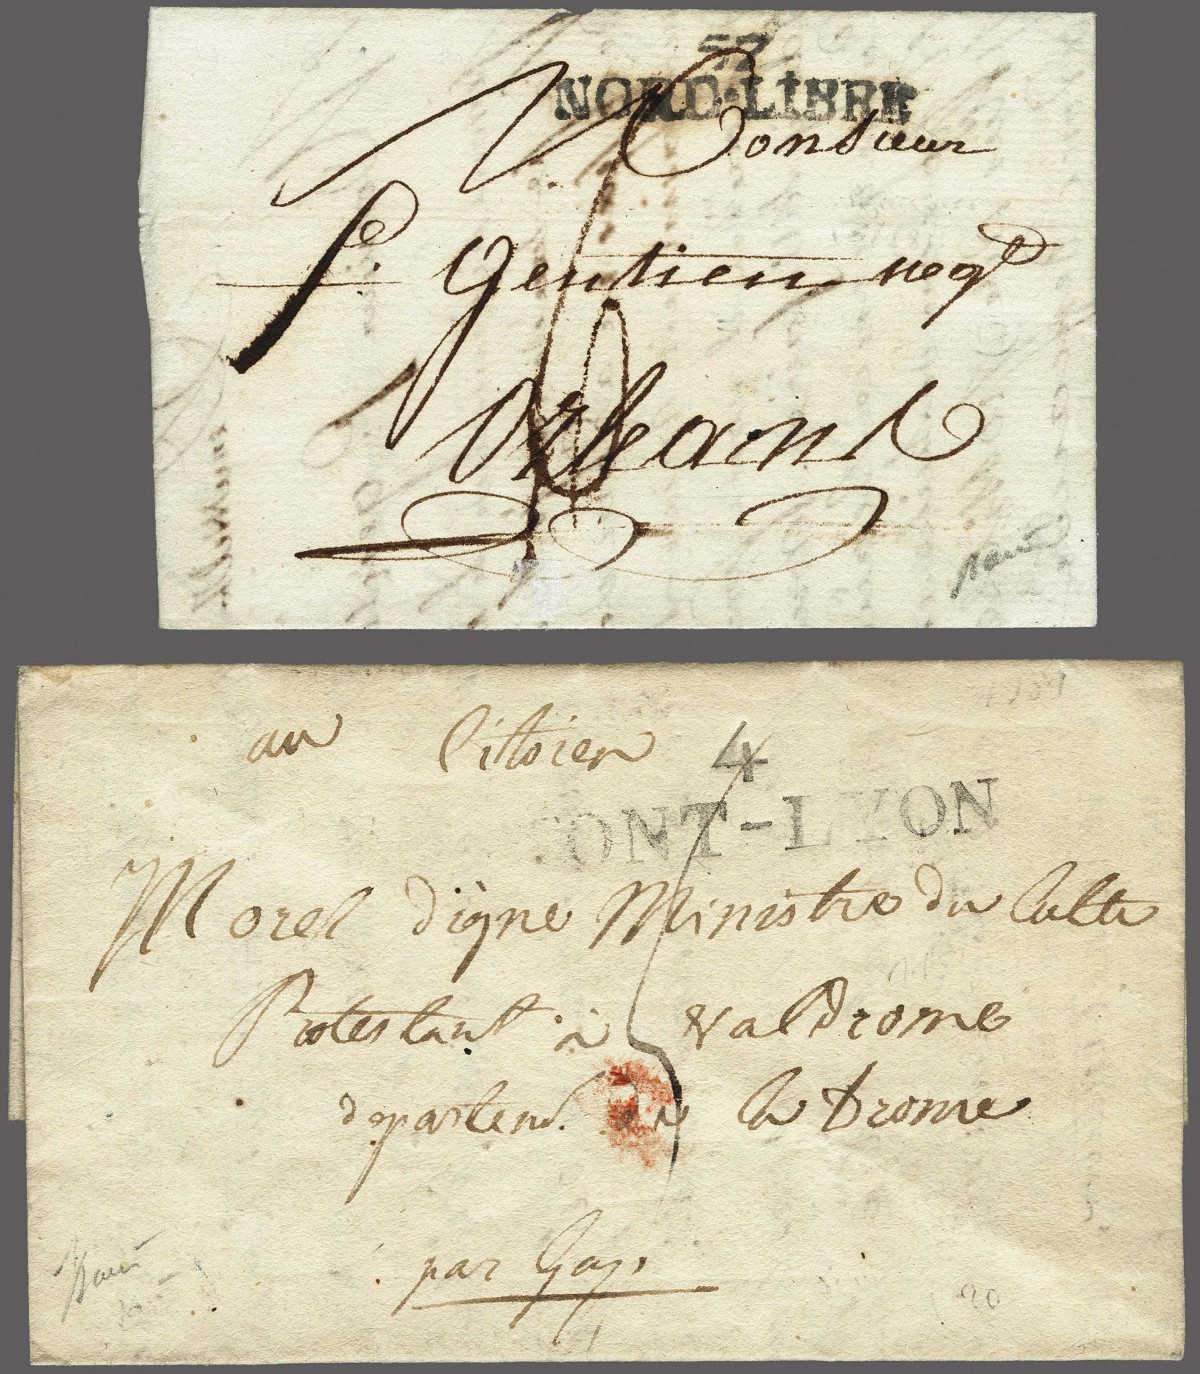 57
NORD-LIBRE
Monsieur
Gentien neg
Orleans
au Citoien
4
FONT-LYON
Morel digne Ministre du Culte
Protestant à valdrome
departem. de la Drome
par Gap.
20